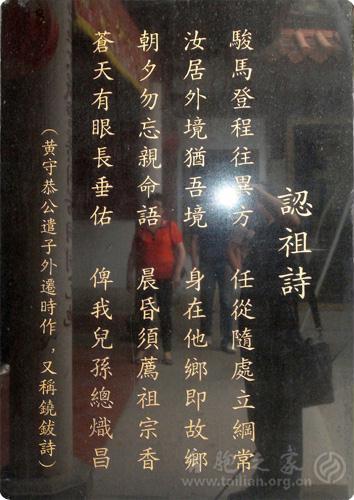 認祖詩
駿馬登程往異方 任從隨處立綱常
汝居外境猶吾境 身在他鄉即故鄉
朝夕勿忘親命語 晨昏須薦祖宗香
蒼天有眼長垂佑 俾我兒孫總熾昌
（黃守恭公遣子外遷時作，又稱鐃鈸詩）
胞衣家
www.tailian.org.cn